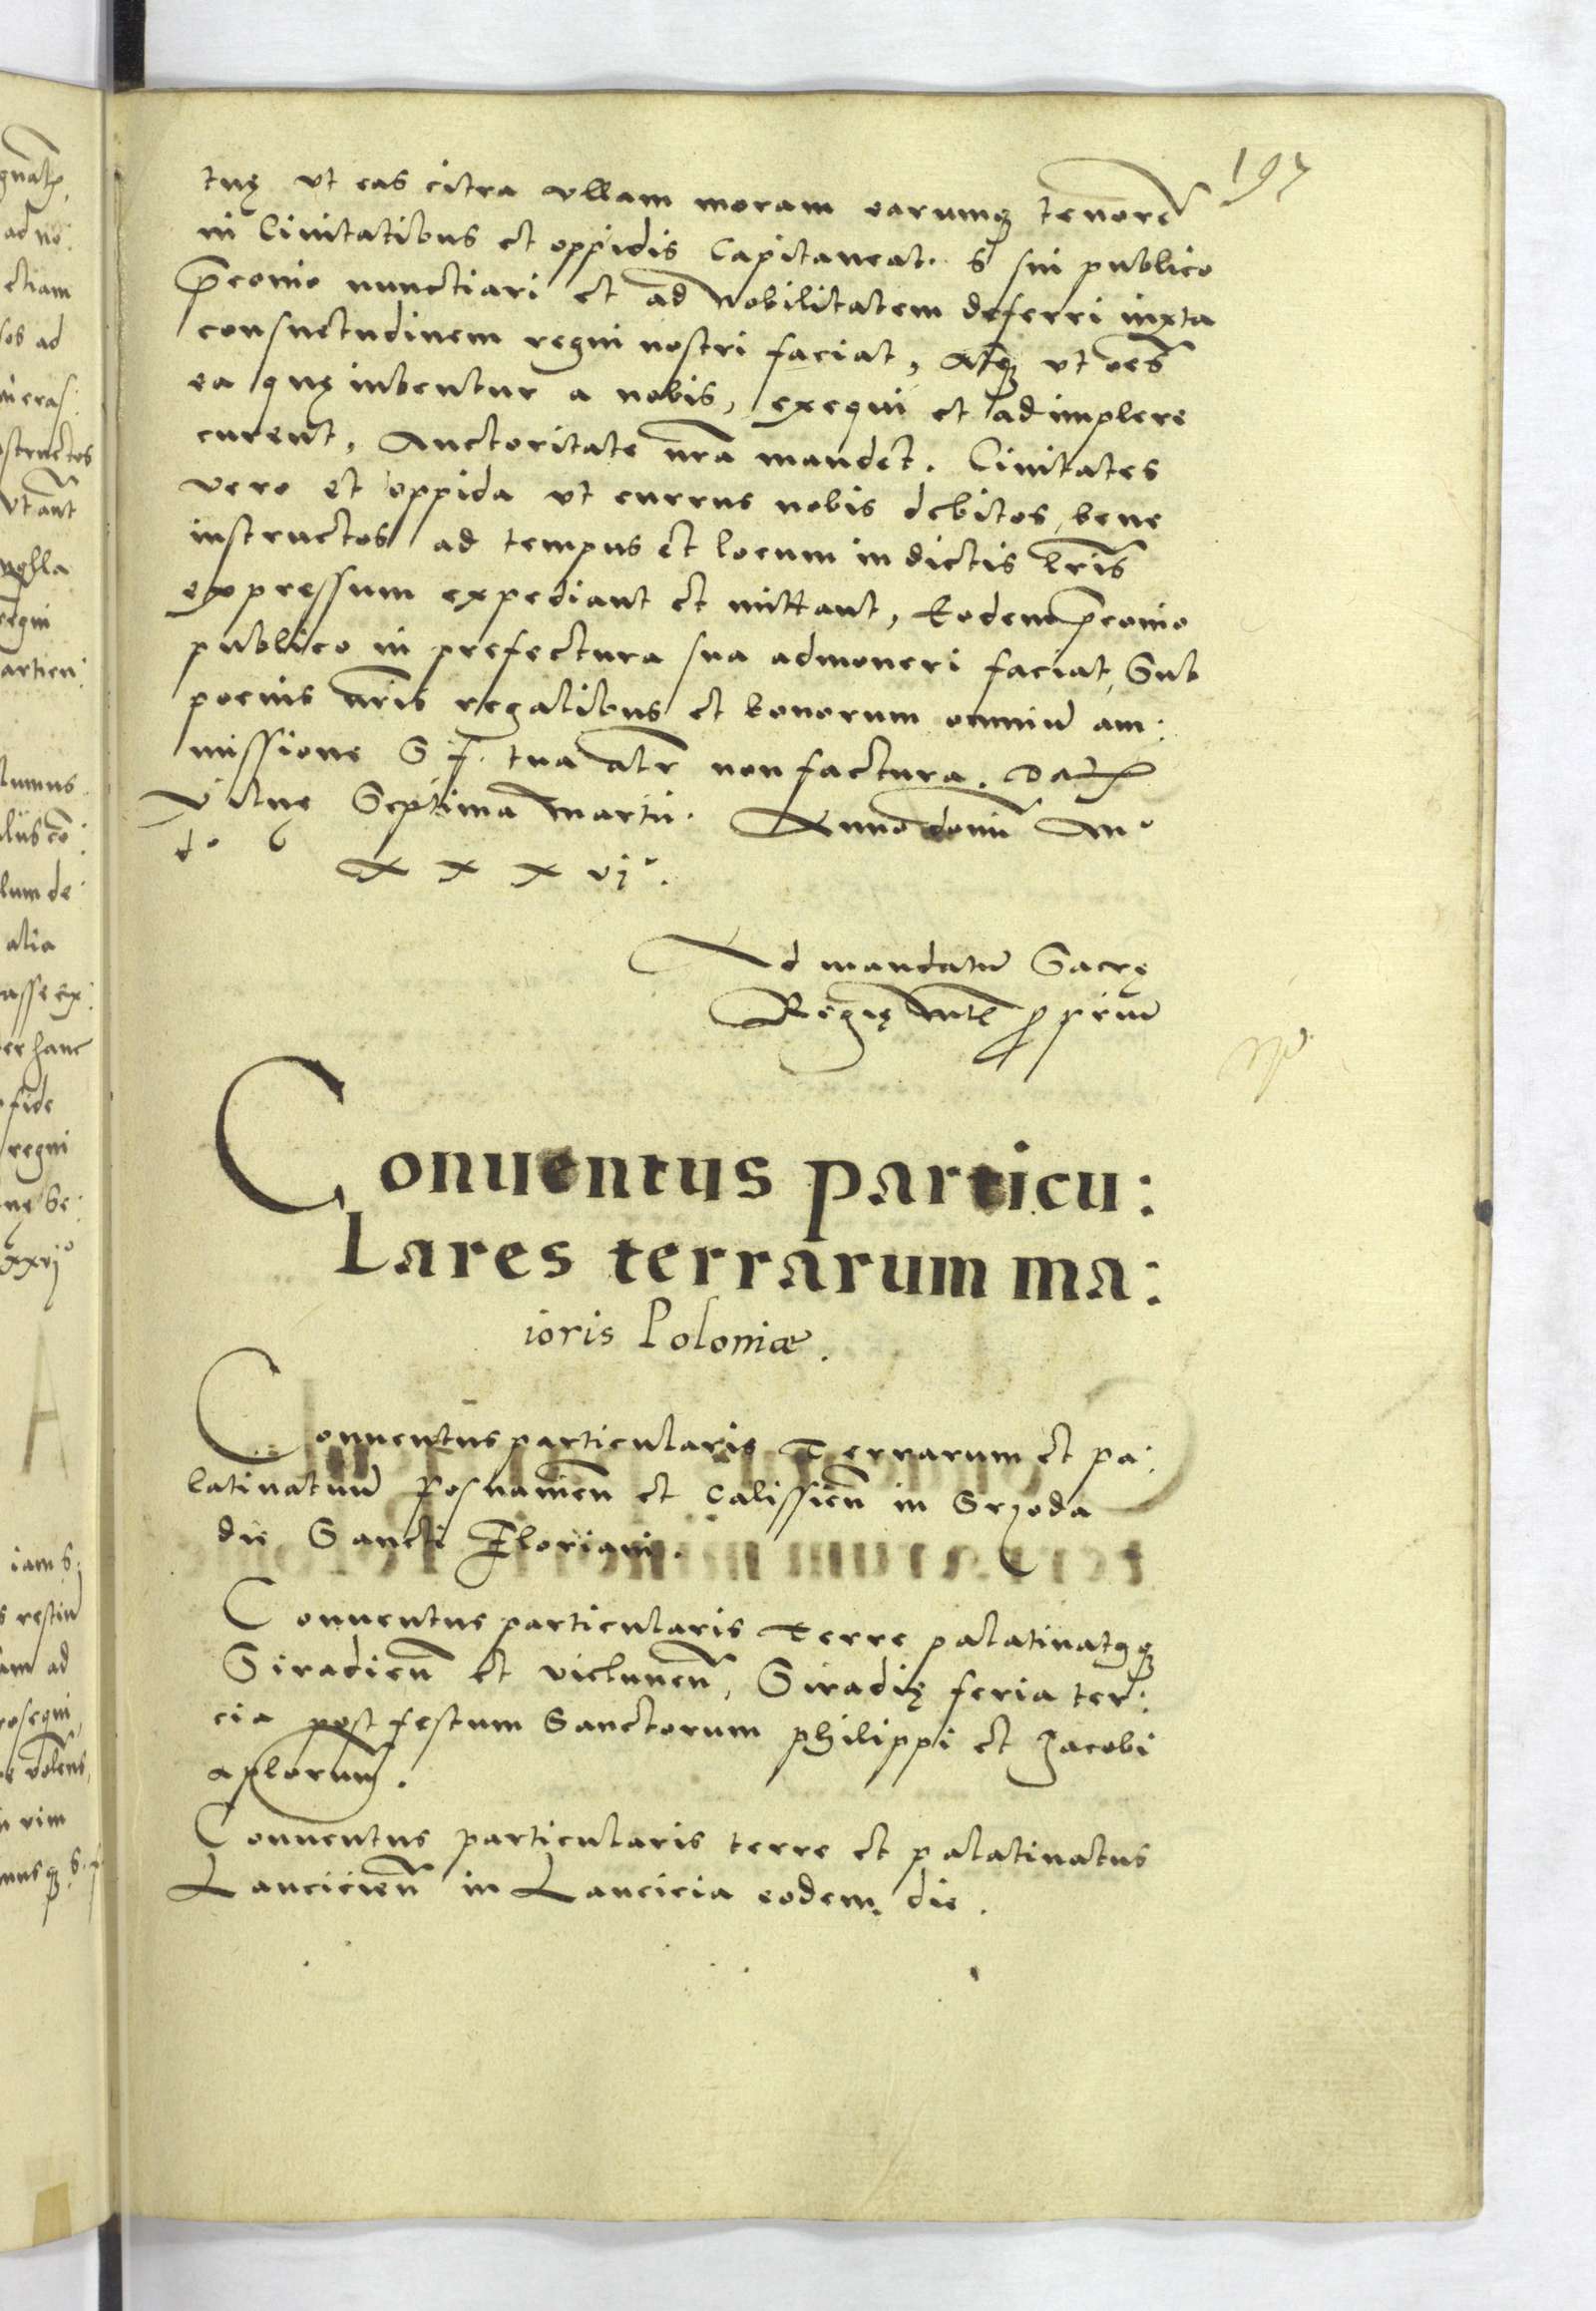 197
tuę ut eas citra ullam moram earumq; tenorē
in Civitatibus et oppidis Capitaneat. S sui publico
p̄conio nunctiari et ad Nobilitatem deferri iuxta
consuetudinem regni nostri faciat, atq; ut oēs
ea quę iubentur a nobis, exequi et adimplere
curent, Auctoritate nr̄a mandet. Civitates
vero et oppida ut currus nobis debitos, bene
instructos ad tempus et locum in dictis lr̄is
expressum expediant et mittant, Eodem p̄conio
publico in prefectura sua admoneri faciat, Sub
poenis nr̄is regalibus et bonorum omniū am:
missione S f. tua alr̄ non factura. Dat
Vilnę Septima Martii. Anno domī M°
d° XXXvj°.
Ad mandatū Sacrę
Regię mt̄ę ꝓpriū
Conuentus particu:
Lares terrarum ma:
ioris Poloniæ.
Conuentus particularis Terrarum et pa:
latinatuū Posnanień et Calissień in Srzoda
die Sancti Floriani.
Conuentus particularis Terre palatinatusq;
Siradień et vielunēn, Siradię feria ter:
cia post festum Sanctorum Philippi et Jacobi
aplorum.
Conuentus particularis terre et palatinatus
Lancicień in Lancicia eodem die.